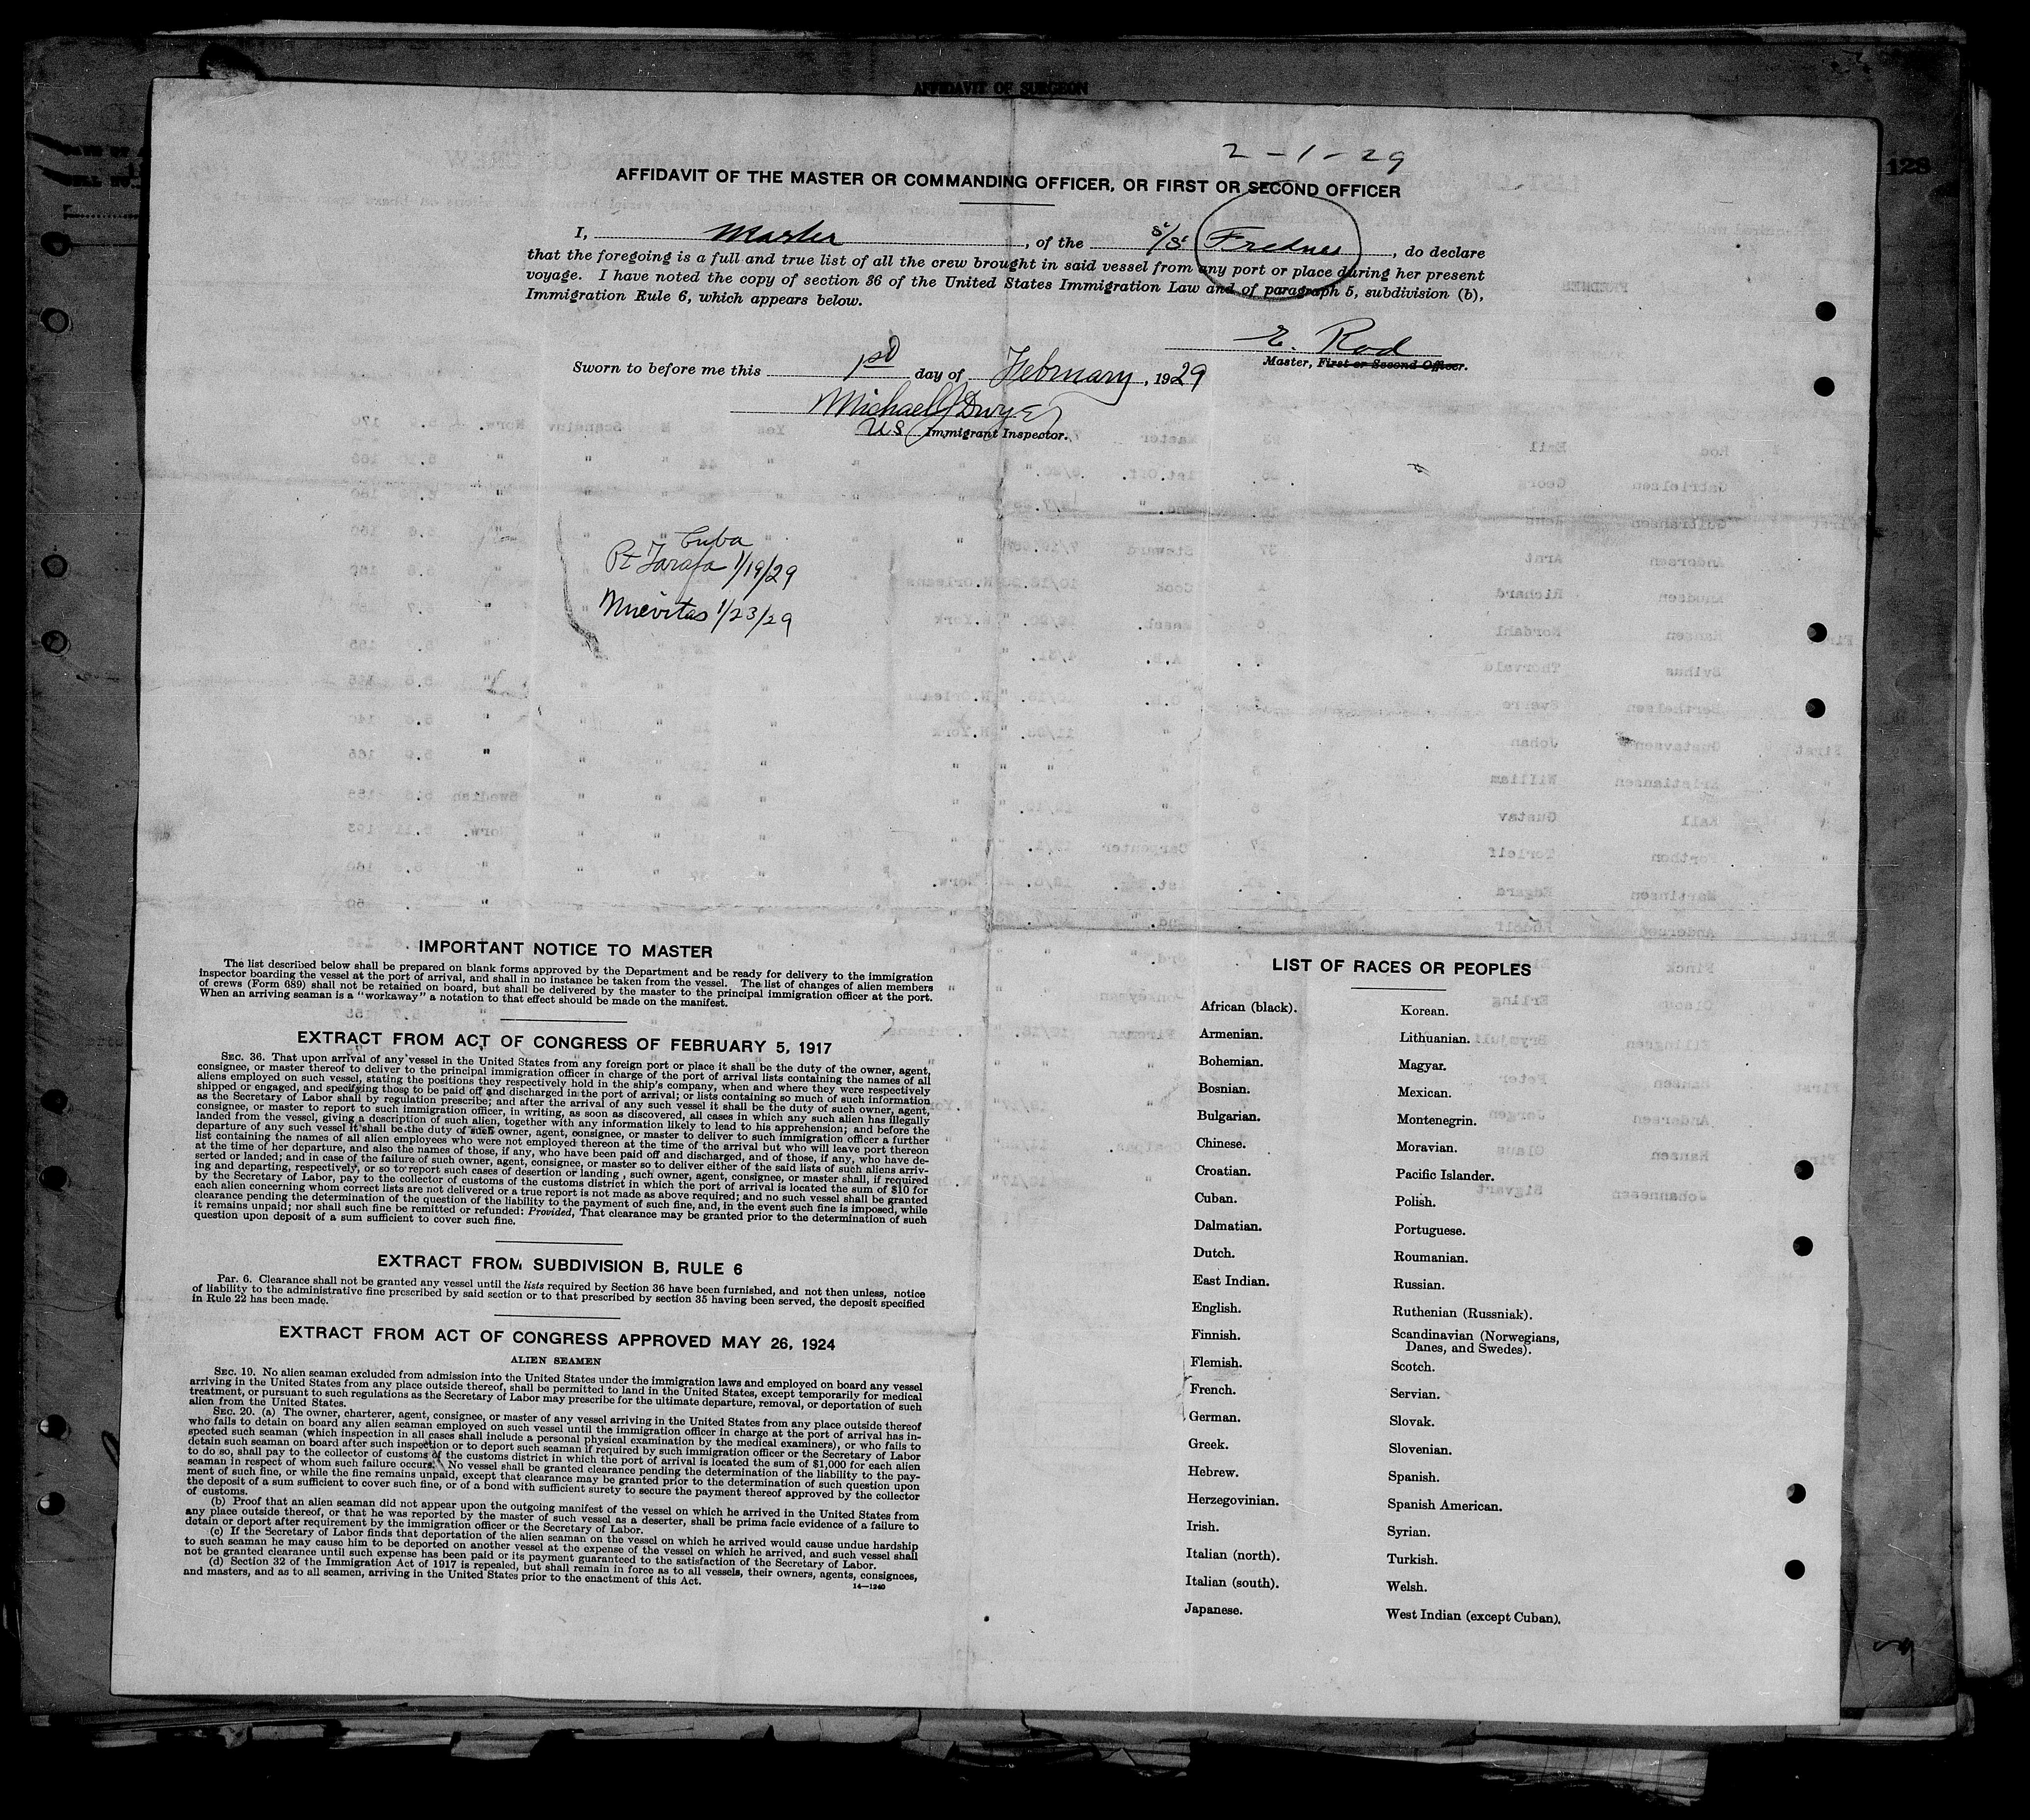 AFFIDAVIT OF SURGEON
128
2-1-29
AFFIDAVIT OF THE MASTER OR COMMANDING OFFICER, OR FIRST OR SECOND OFFICER
I, Master, of the S/S Frednes, do declare
that the foregoing is a full and true list of all the crew brought in said vessel from any port or place during her present
voyage. I have noted the copy of section 36 of the United States Immigration Law and of paragraph 5, subdivision (b),
Immigration Rule 6, which appears below.
E. Rod
Master, First or Second Officer.
Sworn to before me this 1st day of February, 1929
Michael J Dwyer
US Immigrant Inspector.
Cuba
Pt Tarafa 1/19/29
Nuevitas 1/23/29
IMPORTANT NOTICE TO MASTER
The list described below shall be prepared on blank forms approved by the Department and be ready for delivery to the immigration
inspector boarding the vessel at the port of arrival, and shall in no instance be taken from the vessel. The list of changes of alien members
of crews (Form 689) shall not be retained on board, but shall be delivered by the master to the principal immigration officer at the port.
When an arriving seaman is a "workaway" a notation to that effect should be made on the manifest.
EXTRACT FROM ACT OF CONGRESS OF FEBRUARY 5, 1917
SEC. 36. That upon arrival of any vessel in the United States from any foreign port or place it shall be the duty of the owner, agent,
consignee, or master thereof to deliver to the principal immigration officer in charge of the port of arrival lists containing the names of all
aliens employed on such vessel, stating the positions they respectively hold in the ship's company, when and where they were respectively
shipped or engaged, and specifying those to be paid off and discharged in the port of arrival; or lists containing so much of such information
as the Secretary of Labor shall by regulation prescribe; and after the arrival of any such vessel it shall be the duty of such owner, agent,
consignee, or master to report to such immigration officer, in writing, as soon as discovered, all cases in which any such alien has illegally
landed from the vessel, giving a description of such alien, together with any information likely to lead to his apprehension; and before the
departure of any such vessel it shall be the duty of such owner, agent, consignee, or master to deliver to such immigration officer a further
list containing the names of all alien employees who were not employed thereon at the time of the arrival but who will leave port thereon
at the time of her departure, and also the names of those, if any, who have been paid off and discharged, and of those, if any, who have de-
serted or landed; and in case of the failure of such owner, agent, consignee, or master so to deliver either of the said lists of such aliens arriv-
ing and departing, respectively, or so to report such cases of desertion or landing , such owner, agent, consignee, or master shall, if required
by the Secretary of Labor, pay to the collector of customs of the customs district in which the port of arrival is located the sum of $10 for
each alien concerning whom correct lists are not delivered or a true report is not made as above required; and no such vessel shall be granted
clearance pending the determination of the question of the liability to the payment of such fine, and, in the event such fine is imposed, while
it remains unpaid; nor shall such fine be remitted or refunded: Provided, That clearance may be granted prior to the determination of such
question upon deposit of a sum sufficient to cover such fine.
EXTRACT FROM SUBDIVISION B, RULE 6
Par. 6. Clearance shall not be granted any vessel until the lists required by Section 36 have been furnished, and not then unless, notice
of liability to the administrative fine prescribed by said section or to that prescribed by section 35 having been served, the deposit specified
in Rule 22 has been made.
EXTRACT FROM ACT OF CONGRESS APPROVED MAY 26, 1924
ALIEN SEAMEN
SEC. 19. No alien seaman excluded from admission into the United States under the immigration laws and employed on board any vessel
arriving in the United States from any place outside thereof, shall be permitted to land in the United States, except temporarily for medical
treatment, or pursuant to such regulations as the Secretary of Labor may prescribe for the ultimate departure, removal, or deportation of such
alien from the United States.
SEC. 20. (a) The owner, charterer, agent, consignee, or master of any vessel arriving in the United States from any place outside thereof
who fails to detain on board any alien seaman employed on such vessel until the immigration officer in charge at the port of arrival has in-
spected such seaman (which inspection in all cases shall include a personal physical examination by the medical examiners), or who fails to
detain such seaman on board after such inspection or to deport such seaman if required by such immigration officer or the Secretary of Labor
to do so, shall pay to the collector of customs of the customs district in which the port of arrival is located the sum of $1,000 for each alien
seaman in respect of whom such failure occurs. No vessel shall be granted clearance pending the determination of the liability to the pay-
ment of such fine, or while the fine remains unpaid, except that clearance may be granted prior to the determination of such question upon
the deposit of a sum sufficient to cover such fine, or of a bond with sufficient surety to secure the payment thereof approved by the collector
of customs.
(b) Proof that an alien seaman did not appear upon the outgoing manifest of the vessel on which he arrived in the United States from
any place outside thereof, or that he was reported by the master of such vessel as a deserter, shall be prima facie evidence of a failure to
detain or deport after requirement by the immigration officer or the Secretary of Labor.
(c) If the Secretary of Labor finds that deportation of the alien seaman on the vessel on which he arrived would cause undue hardship
to such seaman he may cause him to be deported on another vessel at the expense of the vessel on which he arrived, and such vessel shall
not be granted clearance until such expense has been paid or its payment guaranteed to the satisfaction of the Secretary of Labor.
(d) Section 32 of the Immigration Act of 1917 is repealed, but shall remain in force as to all vessels, their owners, agents, consignees,
and masters, and as to all seamen, arriving in the United States prior to the enactment of this Act.
14—1240
LIST OF RACES OR PEOPLES
African (black).
Armenian.
Bohemian.
Bosnian.
Bulgarian.
Chinese.
Croatian.
Cuban.
Dalmatian.
Dutch.
East Indian.
English.
Finnish.
Flemish.
French.
German.
Greek.
Hebrew.
Herzegovinian.
Irish.
Italian (north).
Italian (south).
Japanese.
Korean.
Lithuanian.
Magyar.
Mexican.
Montenegrin.
Moravian.
Pacific Islander.
Polish.
Portuguese.
Roumanian.
Russian.
Ruthenian (Russniak).
Scandinavian (Norwegians,
Danes, and Swedes).
Scotch.
Servian.
Slovak.
Slovenian.
Spanish.
Spanish American.
Syrian.
Turkish.
Welsh.
West Indian (except Cuban).